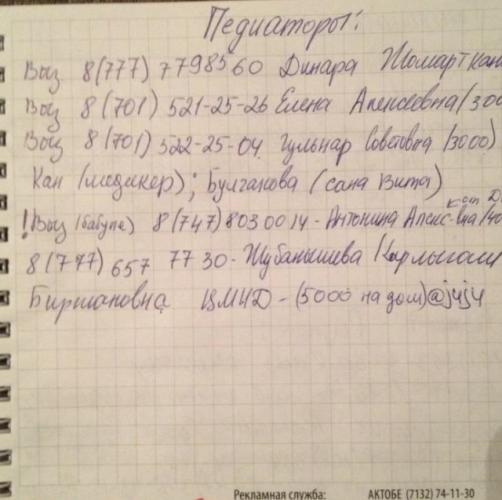 Педиаторы:
Выз 8(777) 7798560 Динара Жомарткан
Выз 8(701) 521-25-26 Елена Алексеевна (300
Выз 8(701) 522-25-04. Гульнар Советовна (3000)
Кан (медикер); Булгакова (сана Вита)
! Выз (бабуля) 8(747) 8030014 - Антонина Алекс-вна
8(777) 657 77 30 - Жубанышева
Биржановна ЦМИД - (5000 на дом) @j4j4
Рекламная служба: АКТОБЕ (7132) 74-11-30